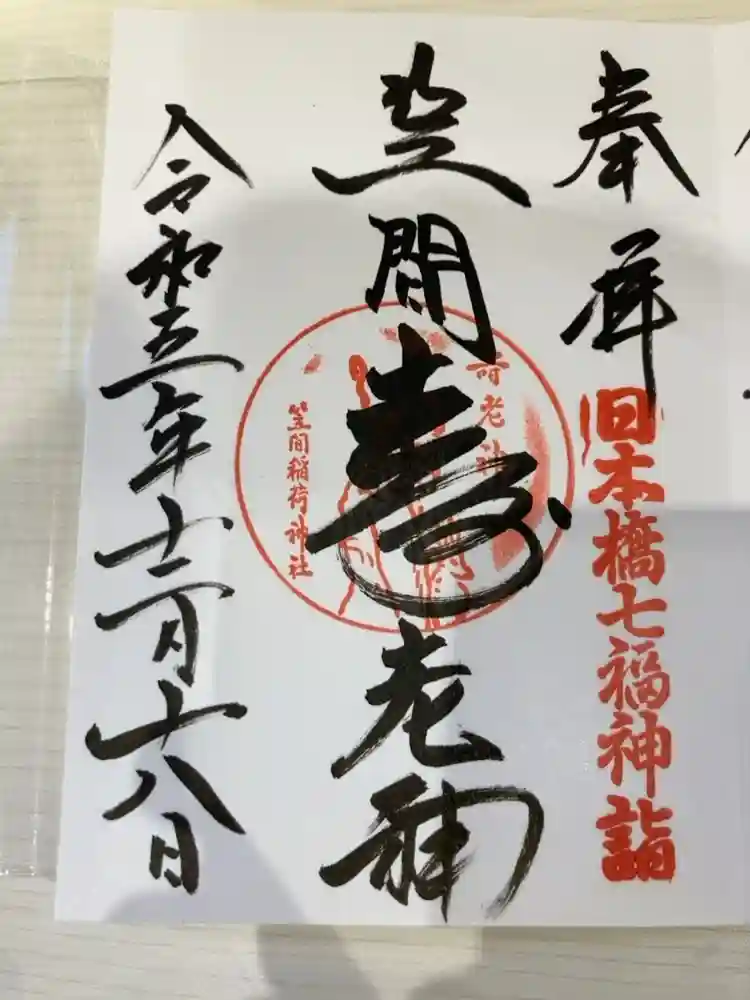 奉拝
日本橋七福神詣
笠間
寿老神
寿老神
笠間稲荷神社
令和五年十二月十八日